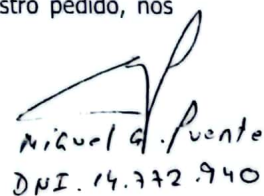 stro pedido, nos
Miguel A. Puente
DNI. 14.772.940